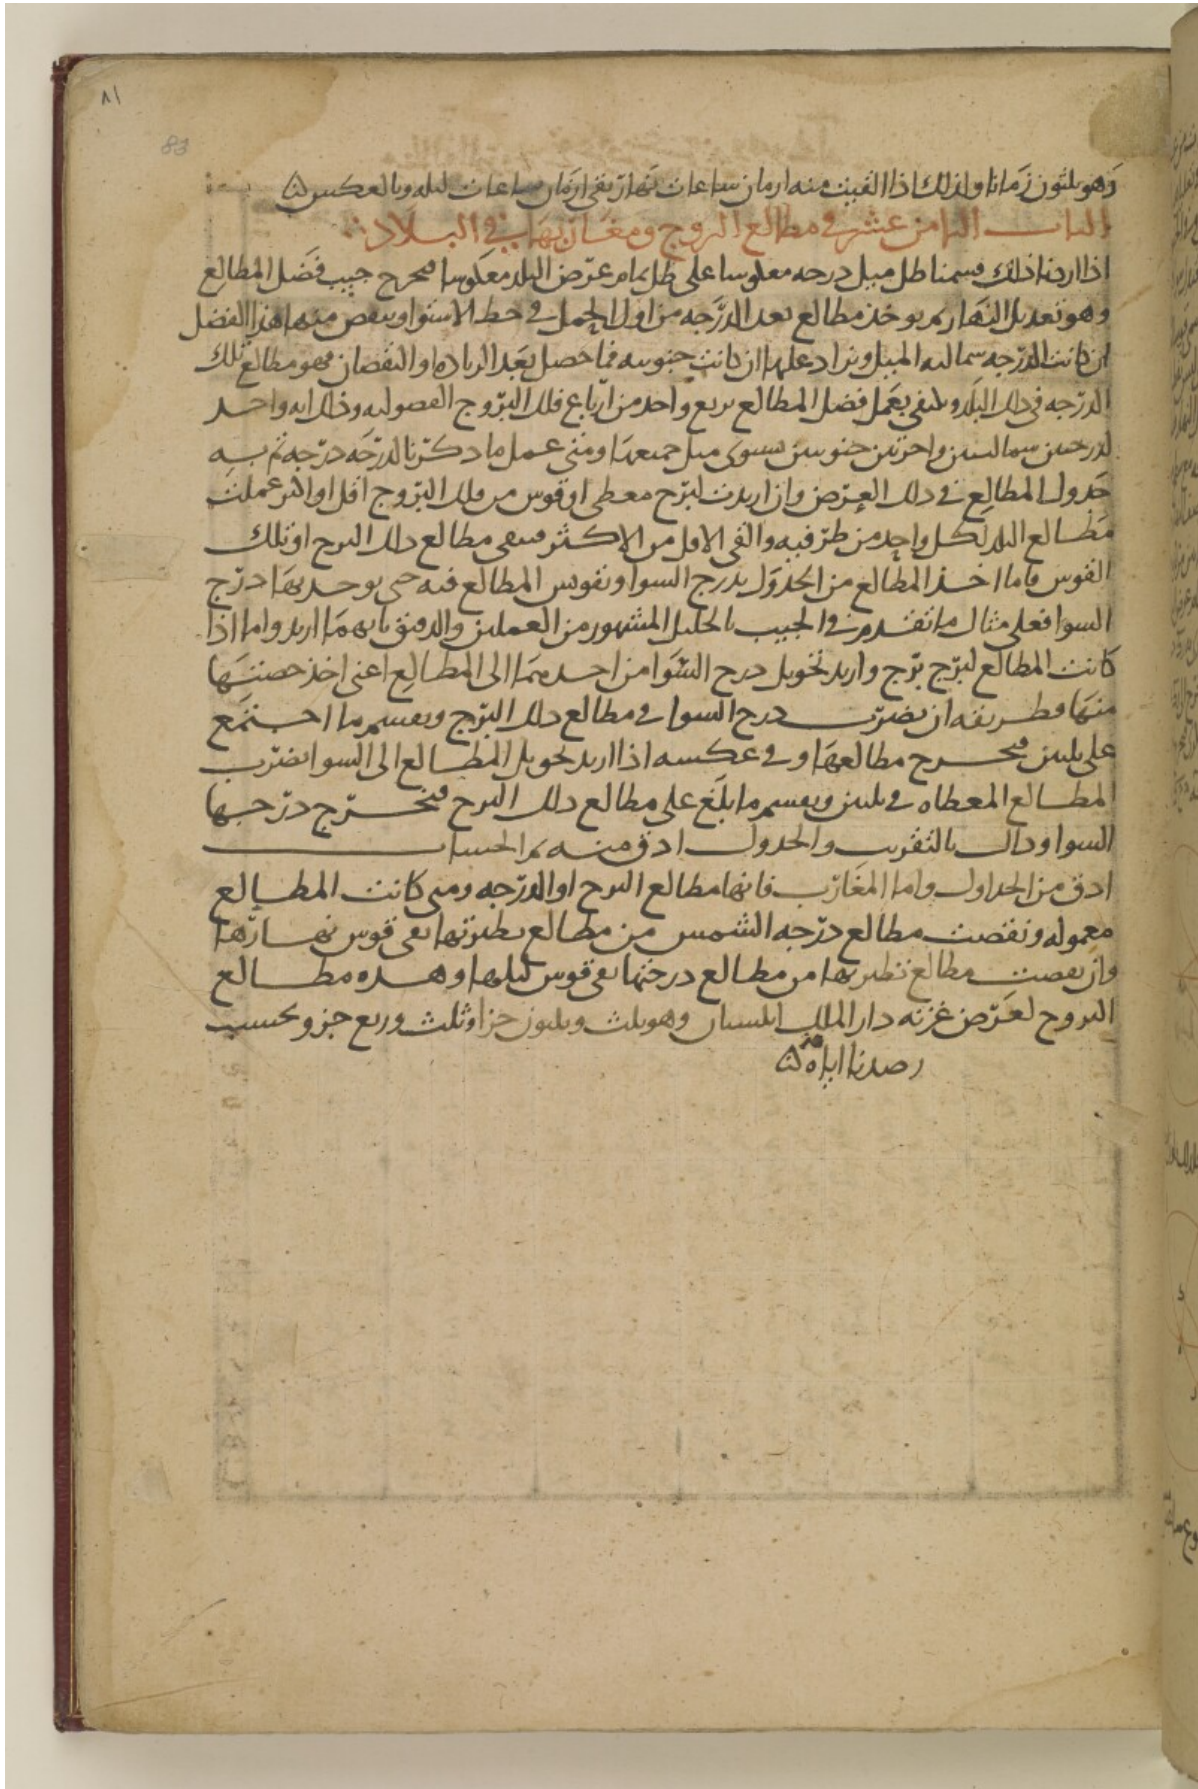 ٨١
83
وهو ثلثون زمانا ولذلك اذا القيت منه ازمان ساعات نهار بقي ازمان ساعات ليله وبالعكس
الباب الثامن عشر في مطالع البروج ومغاربها في البلاد
اذا اردنا ذلك قسمنا ظل ميل درجه معكوسا على ظل تمام عرض البلد معكوسا فيخرج جيب فضل المطالع
وهو تعديل النهار ثم يوخذ مطالع بعد الدرجه من اول الحمل في خط الاستوا وينقص منها هذا الفضل
ان كانت الدرجه شماليه الميل ويزاد عليها ان كانت جنوبيه فما حصل بعد الزياده او النقصان فهو مطالع تلك
الدرجه في ذلك البلد ويكتفى بعمل فضل المطالع بربع واحد من ارباع فلك البروج الفصوليه وذلك انه واحد
لدرجتين شماليتين واخرتين جنوبيتين تستوي ميل جميعها ومتى عمل ما ذكرنا لدرجه درجه تم به
جدول المطالع في ذلك العرض وان اريدت لبرج معطى او قوس من فلك البروج اقل او اكثر عملت
مطالع البلد لكل واحد من طرفيه والقي الاقل من الاكثر فيبقى مطالع ذلك البرج او تلك
القوس فاما اخذ المطالع من الجدول بدرج السوا وتقويس المطالع فيه حتى يوجد بها درج
السوا فعلى مثال ما تقدم في الجيب بالجليل المشهور من العملين والدقيق بايهما اريد واما اذا
كانت المطالع لبرج برج واريد تحويل درج السوا من احدهما الى المطالع اعني اخذ حصتها
منها فطريقه ان يضرب درج السوا في مطالع ذلك البرج ويقسم ما اجتمع
على ثلثين فيخرج مطالعها وفي عكسه اذا اريد تحويل المطالع الى السوا يضرب
المطالع المعطاه في ثلثين ويقسم ما بلغ على مطالع ذلك البرج فيخرج درجها
السوا وذاك بالتقريب والجدول ادق منه ثم الحساب
ادق من الجداول واما المغارب فانها مطالع البرج او الدرجه ومتى كانت المطالع
معموله ونقصت مطالع درجه الشمس من مطالع نظيرتها بقى قوس نهارها
وان نقصت مطالع نظيرتها من مطالع درجتها بقى قوس ليلها وهذه مطالع
البروج لعرض غزنه دار الملك وهو ثلث وثلثون جزا وثلث وربع جزو بحسب
رصدنا اياه